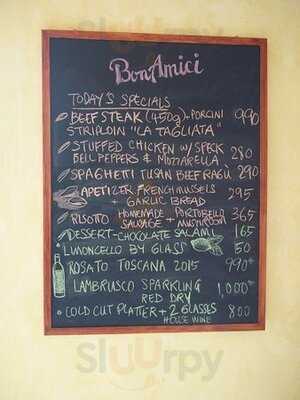 Bon Amici
TODAY'S SPECIALS
BEEF STEAK (450g) - PORCINI 990
STRIPLOIN "LA TAGLIATA"
STUFFED CHICKEN W/ SPECK
BELL PEPPERS & MOZZARELLA 280
SPAGHETTI TUSAN BEEF RAGÙ 290
APETIZER FRENCH MUSSELS 295
+ GARLIC BREAD
RISOTTO HOMEMADE PORTOBELLO 365
SAUSAGE + MUSHROOM
DESSERT - CHOCOLATE SALAMI 165
LIMONCELLO BY GLASS 50
ROSATO TOSCANA 2015 990
LAMBRUSCO SPARKLING 1,000
RED DRY
COLD CUT PLATTER + 2 GLASSES 800
HOUSE WINE
Sluurpy